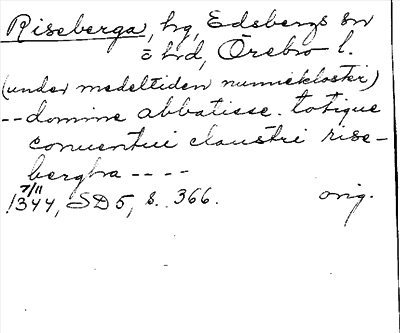 Riseberga, hg, Edsbergs sn
o hd, Örebro l.
(under medeltiden nunnekloster)
-- domine abbatisse. totique
conuentui claustri rise-
bergha ----
7/11
1344, SD 5, s. 366. orig.